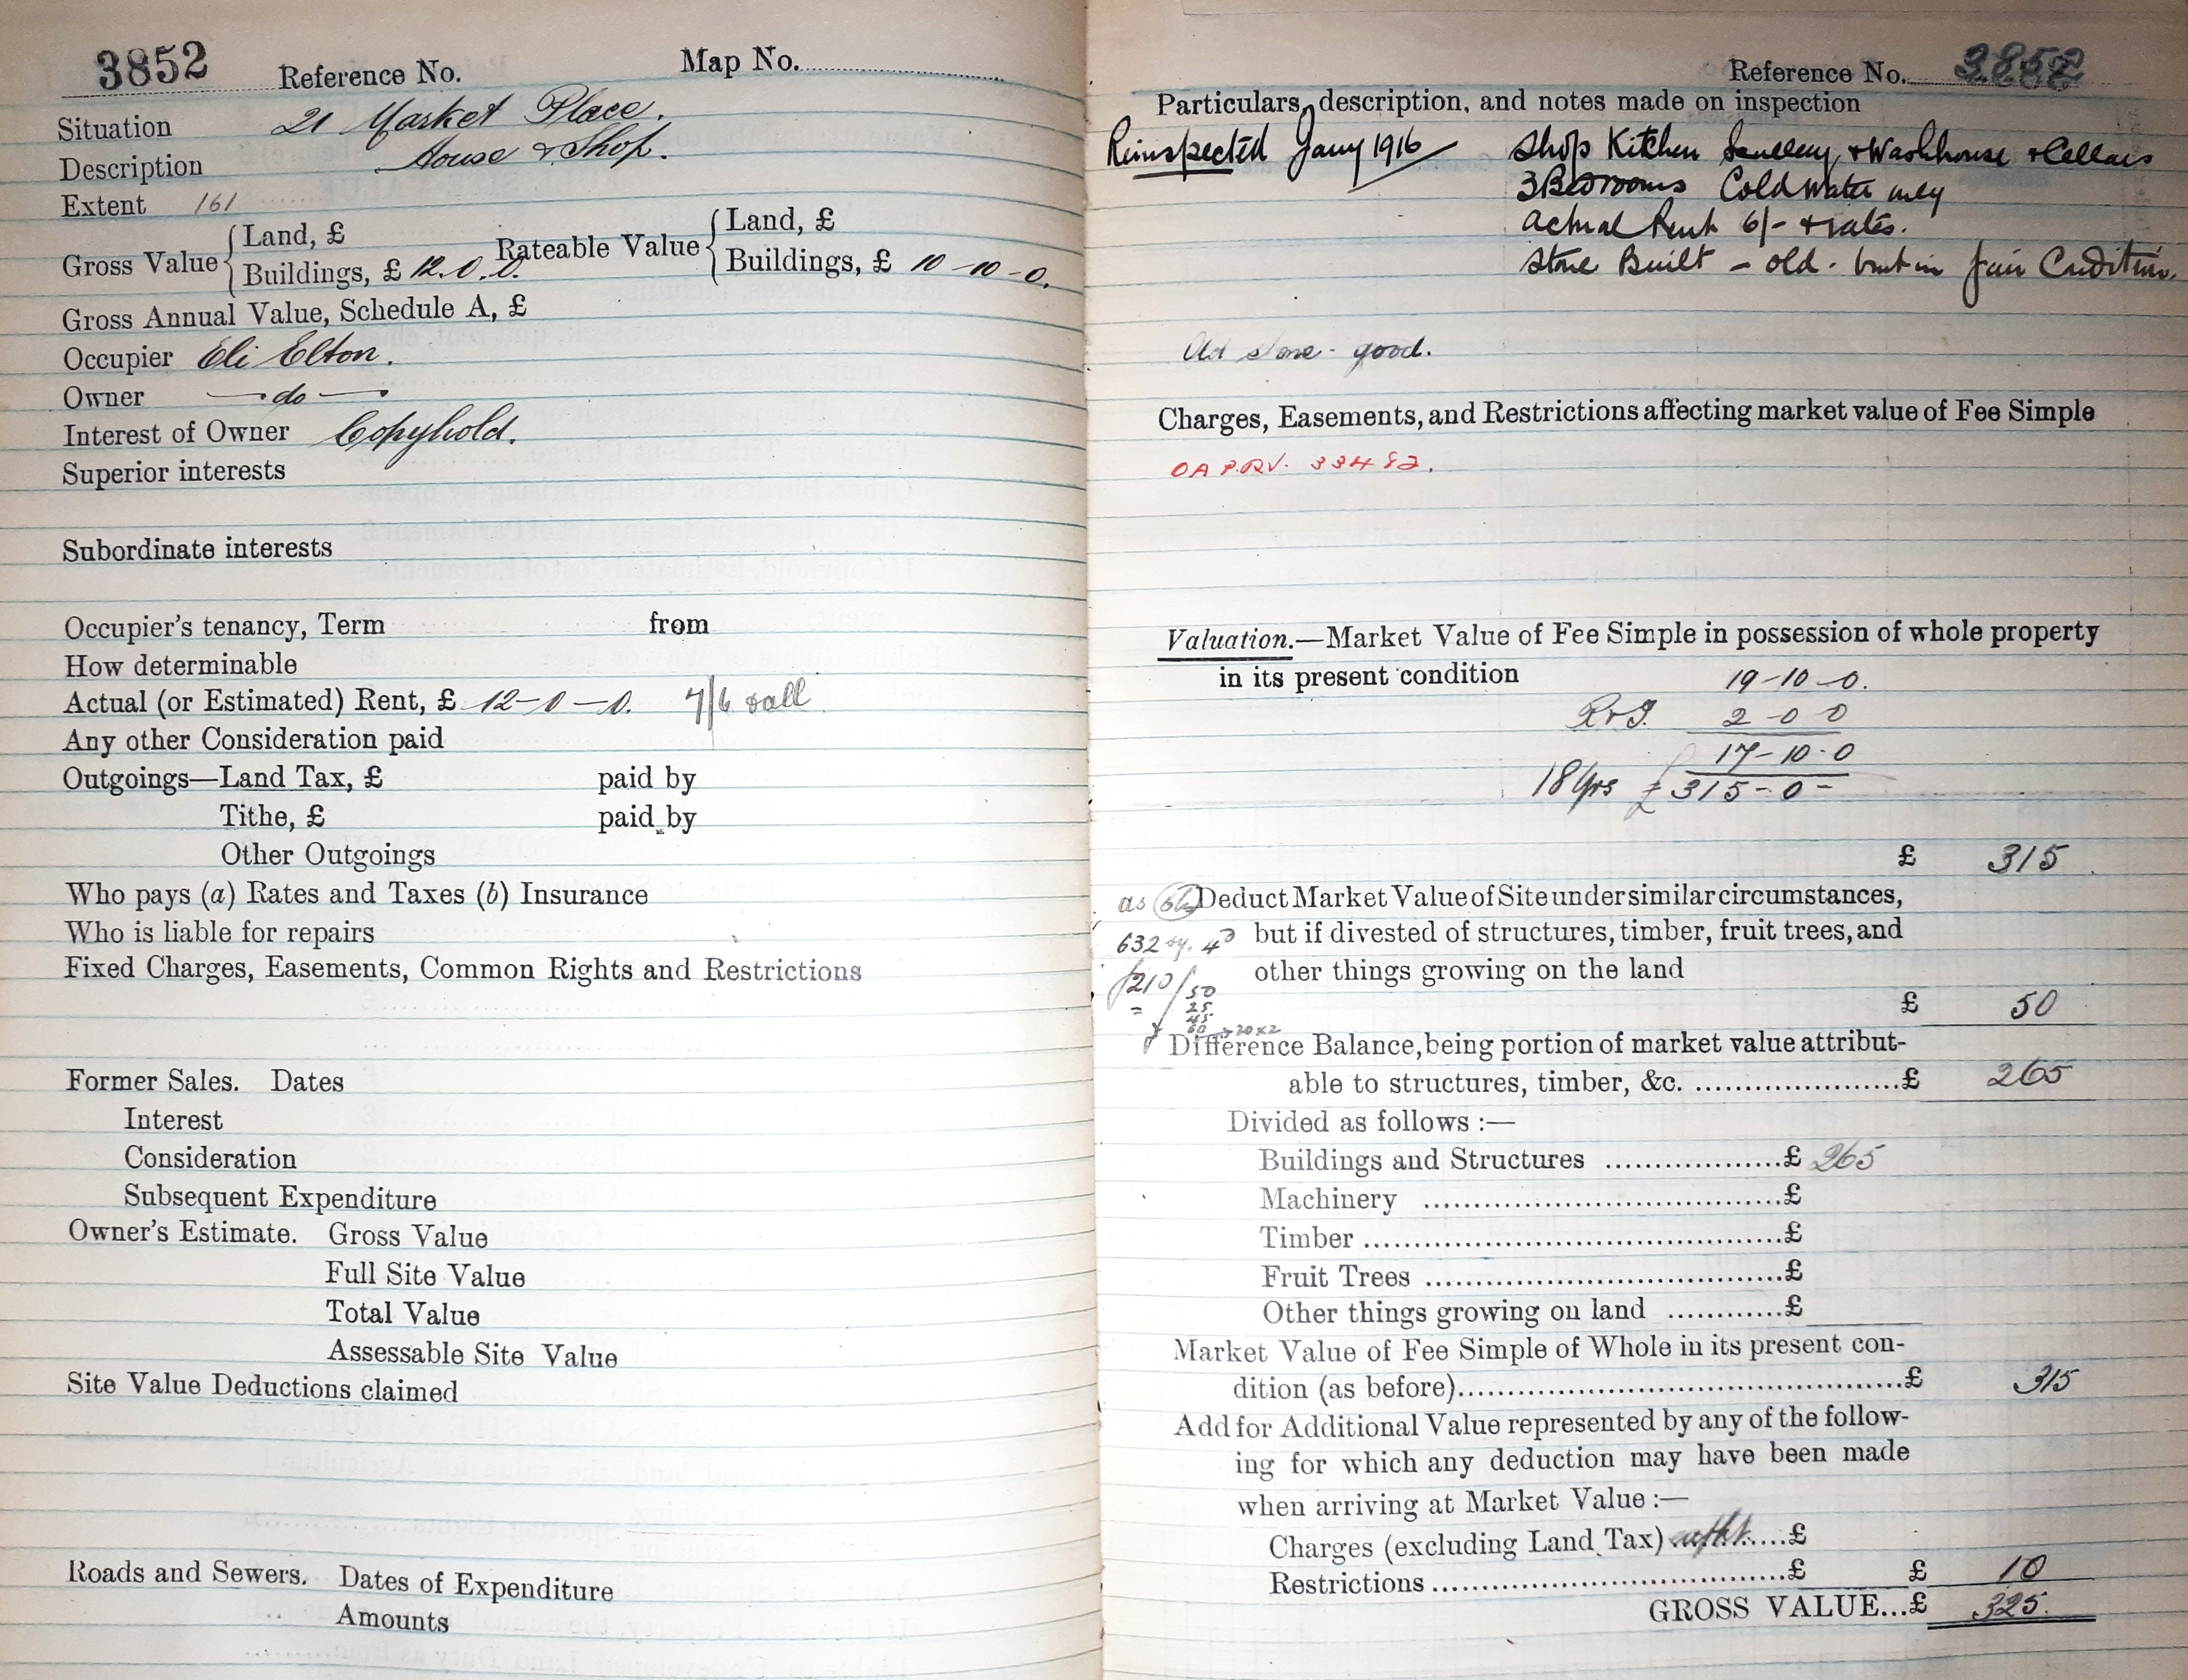 3852 Reference No. Map No.
Situation 21 Market Place.
Description House & Shop.
Extent 161
Gross Value { Land, £
Buildings, £ 12.0.0.
Rateable Value { Land, £
Buildings, £ 10-10-0.
Gross Annual Value, Schedule A, £
Occupier Eli Elton.
Owner —do—
Interest of Owner Copyhold.
Superior interests
Subordinate interests
Occupier's tenancy, Term from
How determinable
Actual (or Estimated) Rent, £ 12-0-0. 7/6 & all
Any other Consideration paid
Outgoings—Land Tax, £ paid by
Tithe, £ paid by
Other Outgoings
Who pays (a) Rates and Taxes (b) Insurance
Who is liable for repairs
Fixed Charges, Easements, Common Rights and Restrictions
Former Sales. Dates
Interest
Consideration
Subsequent Expenditure
Owner's Estimate. Gross Value
Full Site Value
Total Value
Assessable Site Value
Site Value Deductions claimed
Roads and Sewers. Dates of Expenditure
Amounts
Reference No. 3852
Particulars, description, and notes made on inspection
Reinspected Jany 1916 Shop Kitchen Scullery & Washhouse & Cellars
3 Bedrooms Cold Water only
Actual Rent 6/- & rates.
Stone Built - old - but in fair Condition.
Old stone - good.
Charges, Easements, and Restrictions affecting market value of Fee Simple
OAP.RV. 33482.
Valuation.—Market Value of Fee Simple in possession of whole property
in its present condition 19-10-0.
R & I. 2-0-0
17-10-0
18 Yrs £315-0-
£ 315
as Deduct Market Value of Site under similar circumstances,
632 sy. 4D but if divested of structures, timber, fruit trees, and
£210 / 50 other things growing on the land
= 25
45
60 → 30 x 2
£ 50
Difference Balance, being portion of market value attribut-
able to structures, timber, &c. £ 265
Divided as follows :—
Buildings and Structures £ 265
Machinery £
Timber £
Fruit Trees £
Other things growing on land £
Market Value of Fee Simple of Whole in its present con-
dition (as before) £ 315
Add for Additional Value represented by any of the follow-
ing for which any deduction may have been made
when arriving at Market Value :—
Charges (excluding Land Tax) £
Restrictions £ £ 10
GROSS VALUE...£ 325.